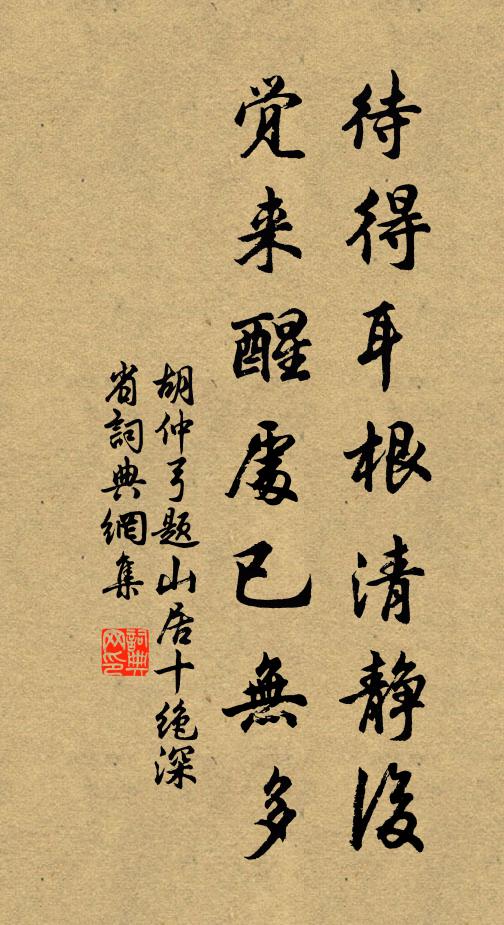 待得耳根清静後
覚来醒處已無多
胡仲弓题山居十绝深
省詞典網集
詞典
网印